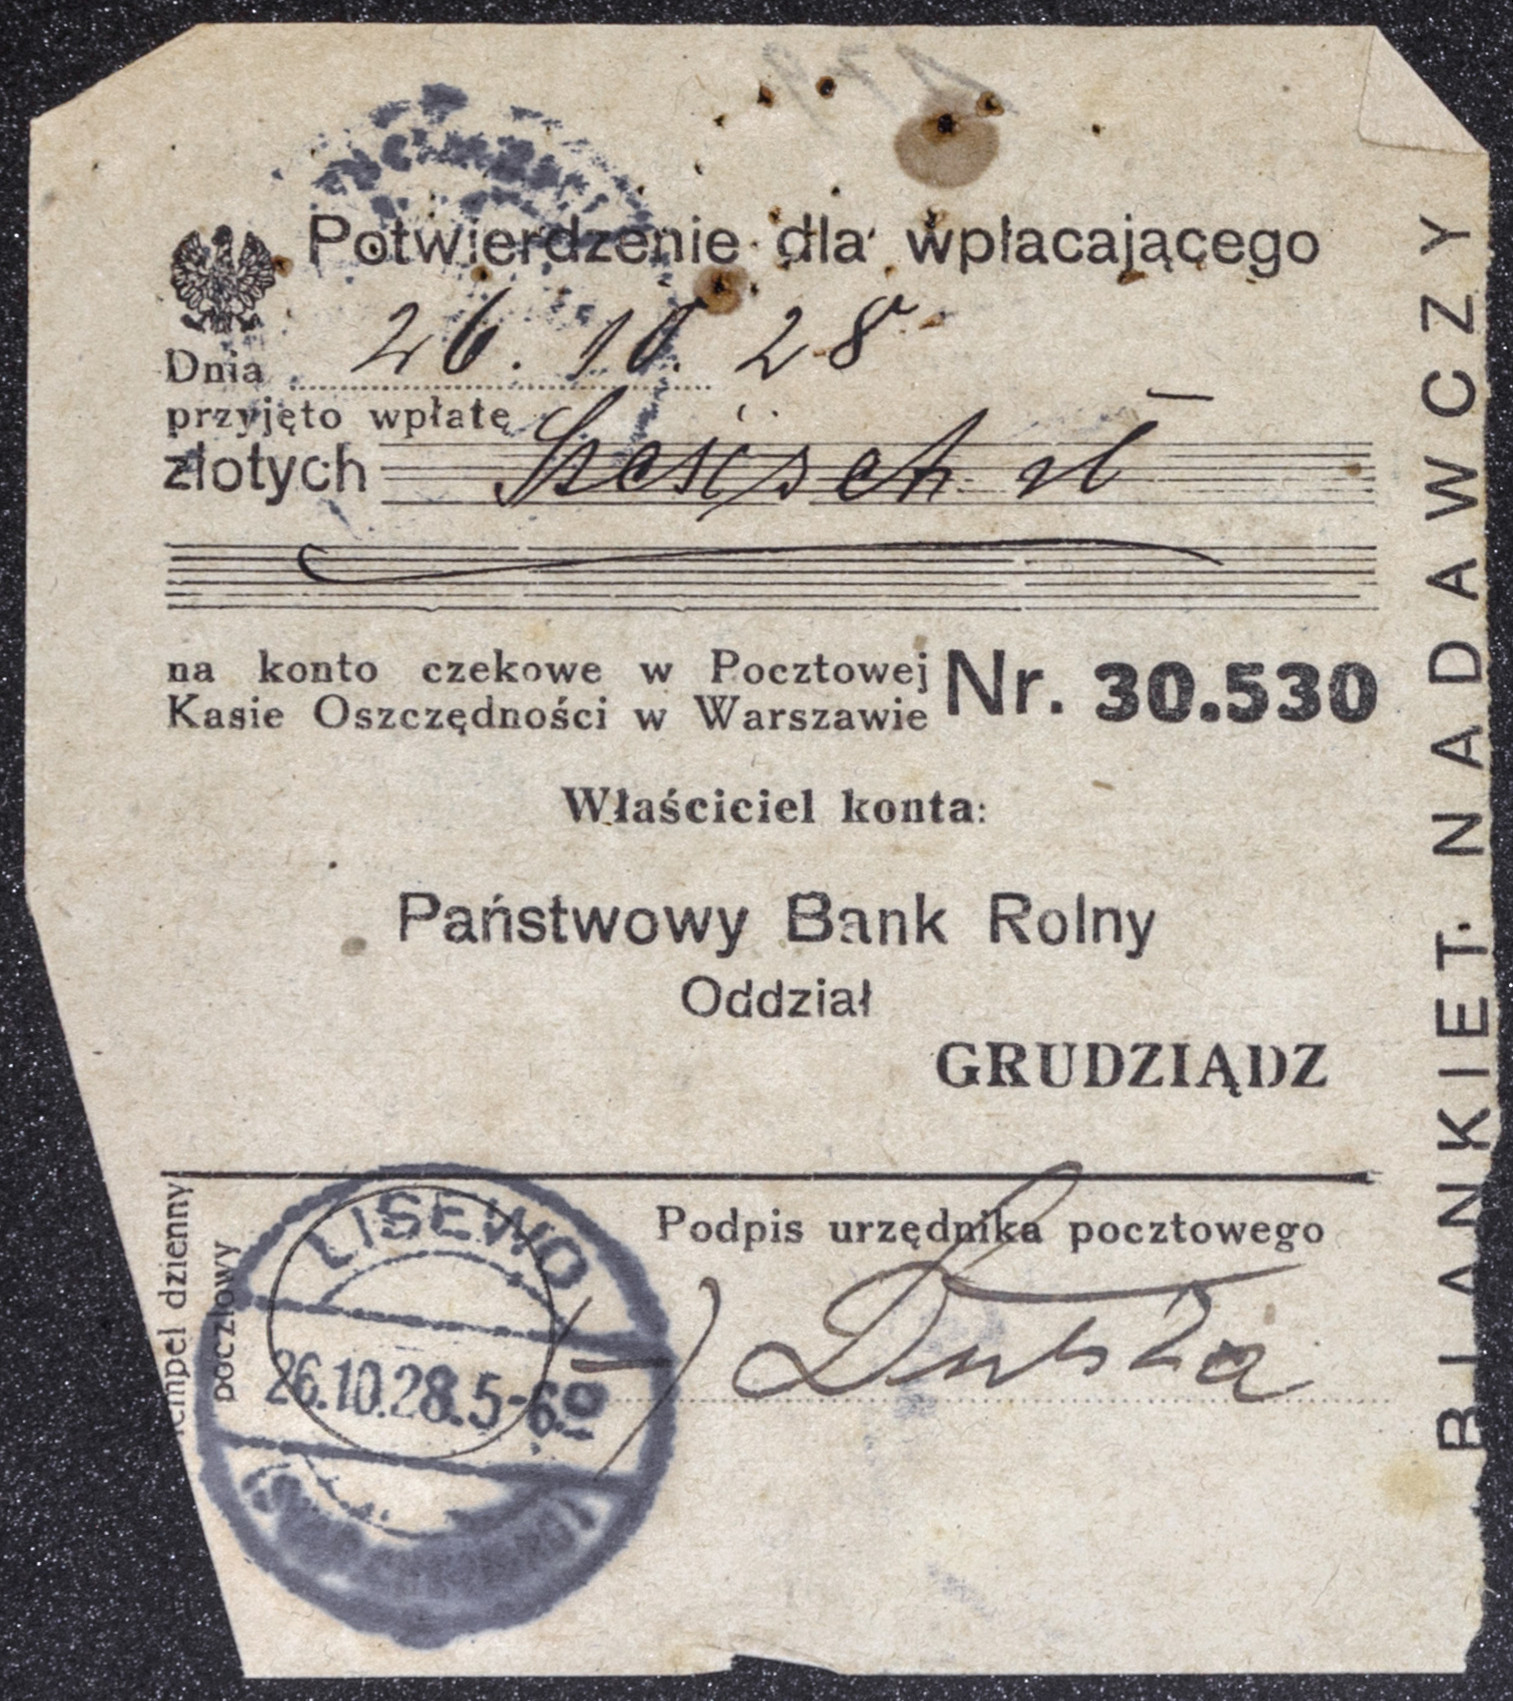 Potwierdzenie dla wpłacającego
Dnia 26. 10. 28
przyjęto wpłatę
złotych Sześćset zł
na konto czekowe w Pocztowej
Kasie Oszczędności w Warszawie Nr. 30.530
Właściciel konta:
Państwowy Bank Rolny
Oddział
GRUDZIĄDZ
Podpis urzędnika pocztowego
empel dzienny
pocztowy
LISEWO
26.10.28.5-6
BLANKIET NADAWCZY